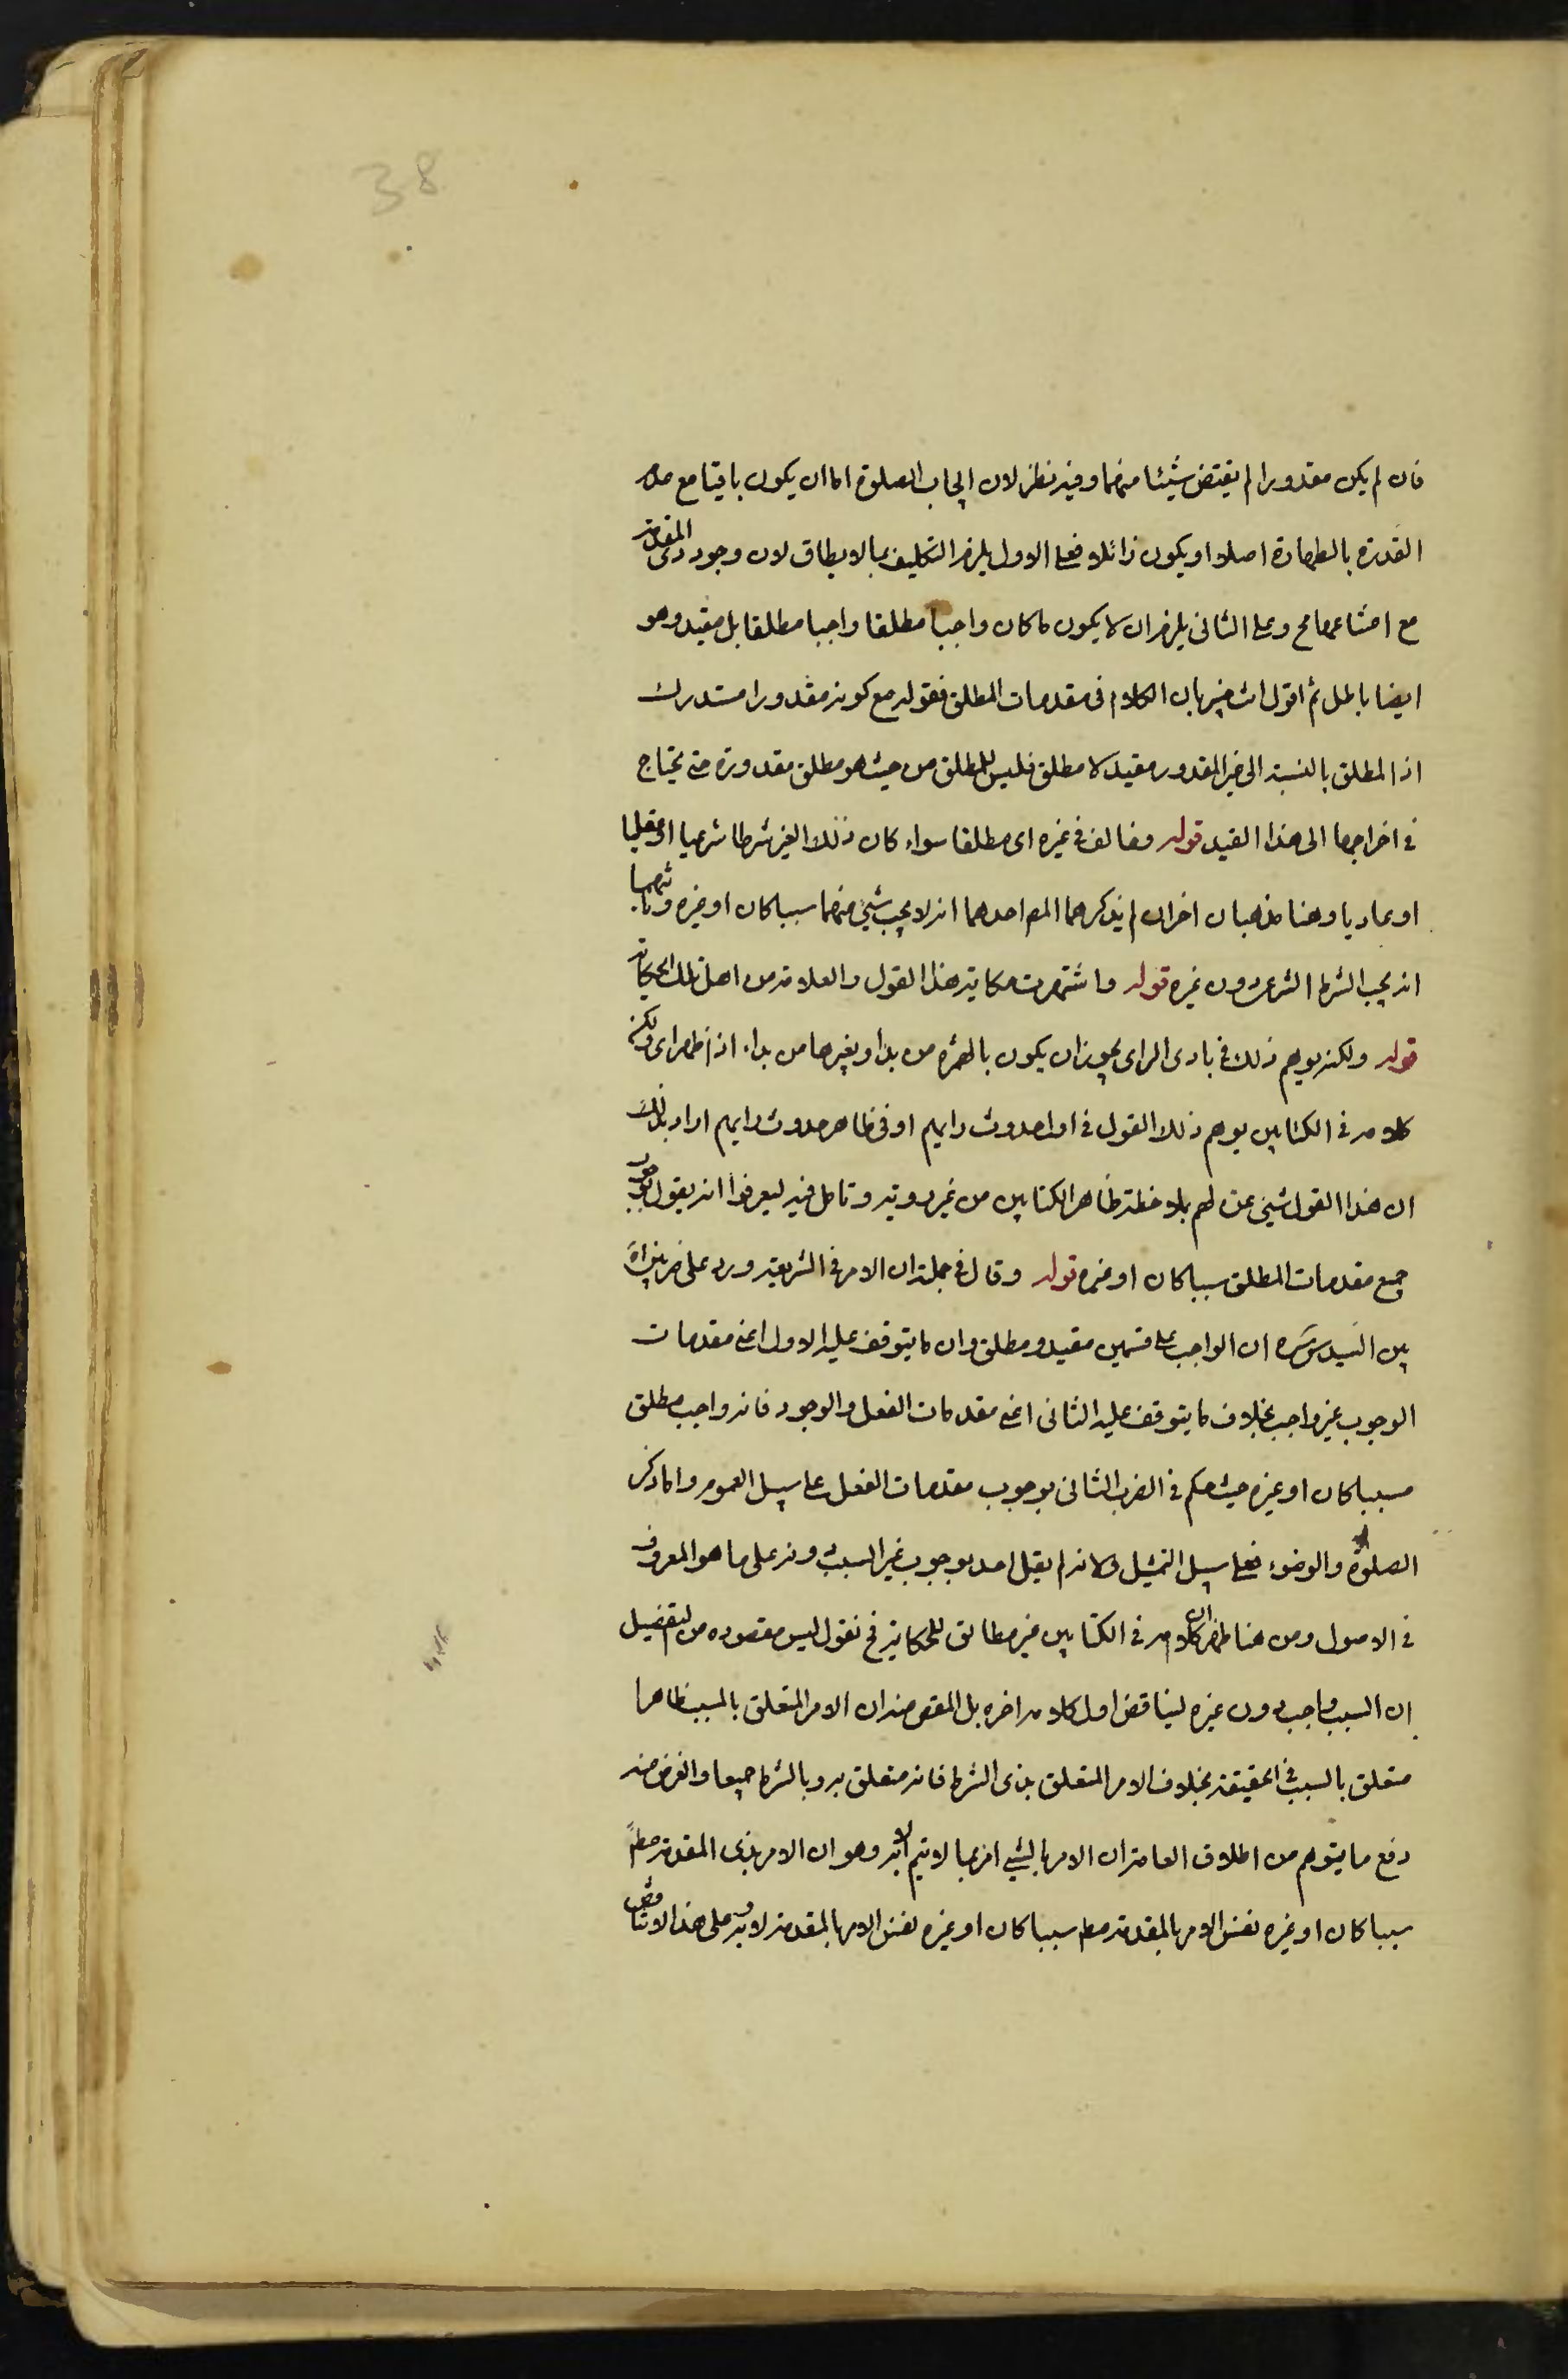 38
فان لم يكن مقدورا لم يقتض شيئا منهما وفيه نظر لان ايجاب الصلوة اما ان يكون باقيا مع عدم
القدرة بالطهارة اصلا او يكون زائلا فعلى الاول يلزم التكليف بما لا يطاق لان وجود ذى المقدمة
مع امتناعها مح وعلى الثانى يلزم ان لا يكون ما كان واجبا مطلقا واجبا مطلقا بل مقيد وهو
ايضا باطل ثم اقول انت خبير بان الكلام فى مقدمات المطلق فقوله مع كونه مقدورا مستدرك
اذ المطلق بالنسبة الى غير المقدور مقيد لا مطلق فليس للمطلق من حيث هو مطلق مقدورة حتى يحتاج
فى اخراجها الى هذا القيد قوله وخالف فى غيره اى مطلقا سواء كان ذلك الغير شرطا شرعيا او عقليا
او عاديا وهنا مذهبان اخران لم يذكرهما المص احدهما انه لا يجب شئ منهما سببا كان او غيره وثانيهما
انه يجب الشرط الشرعى دون غيره قوله واشتهرت حكاية هذا القول والعلامة من اهل تلك الحكاية
قوله ولكنه يوهم ذلك فى بادى الراى يجوز ان يكون بالهمزة من بدأ او بغيرها من بدا اذا ظهر اى ولكنه
كلامه فى الكتابين يوهم ذلك القول فى اول حدوث رايهم او فى ظاهر حدوث رايهم اراد بذلك
ان هذا القول شئ عن لهم بملاحظة ظاهر الكتابين من غير روية وتامل فيه ليعرفوا انه يقول بوجوب
جميع مقدمات المطلق سببا كان او غيره قوله وقال فى جملته ان الامر فى الشريعة ورد على ضربين اه
بين السيد قدس سره ان الواجب على قسمين مقيد ومطلق وان ما يتوقف عليه الاول اعنى مقدمات
الوجوب غير واجب بخلاف ما يتوقف عليه الثانى اعنى مقدمات الفعل والوجود فانه واجب مطلق
سببا كان او غيره حيث حكم فى الضرب الثانى بوجوب مقدمات الفعل على سبيل العموم واما ذكر
الصلوة والوضوء فعلى سبيل التمثيل ولانه لم يقل احد بوجوب غير السبب دونه على ما هو المعروف
فى الاصول ومن هنا ظهر ان كلامه فى الكتابين غير مطابق للحكاية فح نقول ليس مقصوده من التفصيل
ان السبب واجب دون غيره ليناقض اول كلامه اخره بل المقص منه ان الامر المتعلق بالمسبب ظاهرا
متعلق بالسبب فى الحقيقة بخلاف الامر المتعلق بذى الشرط فانه متعلق به وبالشرط جميعا والغرض منه
دفع ما يتوهم من اطلاق العامة ان الامر بالشئ امر بما لا يتم الا به وهو ان الامر بذى المقدمة مطلقا
سببا كان او غيره نفس الامر بالمقدمة مط سببا كان او غيره نفس الامر بالمقدمة لا به وعلى هذا لا تناقض